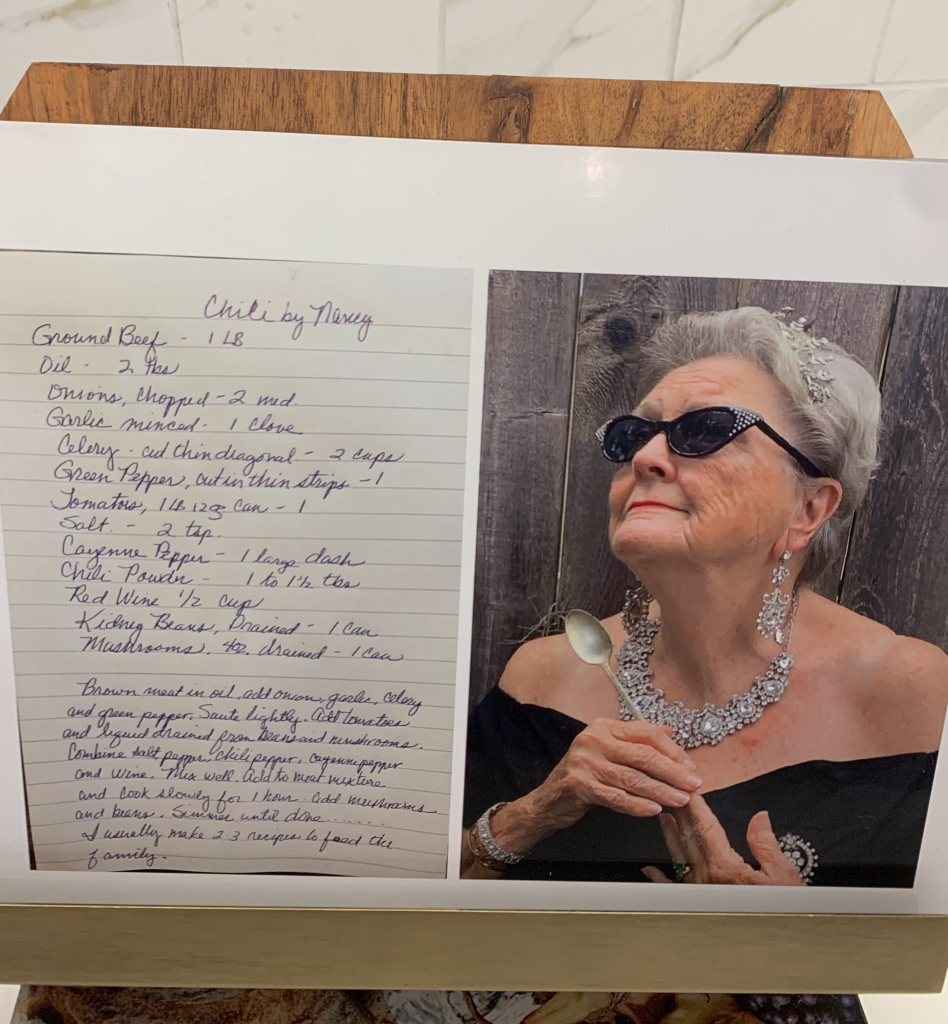 Chili by Nancy
Ground Beef - 1 LB
Oil - 2 tbs
Onions, Chopped - 2 med.
Garlic minced - 1 clove
Celery - cut thin diagonal - 2 cups
Green Pepper, cut in thin strips - 1
Tomatoes, 1 LB 12oz can - 1
Salt. - 2 tsp.
Cayenne Pepper - 1 large dash
Chili Powder - 1 to 1½ tbs
Red Wine ½ cup
Kidney Beans, Drained - 1 can
Mushrooms. 4oz. drained - 1 can
Brown meat in oil, add onion, garlic, celery
and green pepper. Saute lightly. Add tomatoes
and liquid drained from beans and mushrooms.
Combine salt, pepper, chili pepper, cayenne pepper
and wine. Mix well. Add to meat mixture
and cook slowly for 1 hour. Add mushrooms
and beans. Simmer until done.......
I usually make 2-3 recipes to feed the
family.